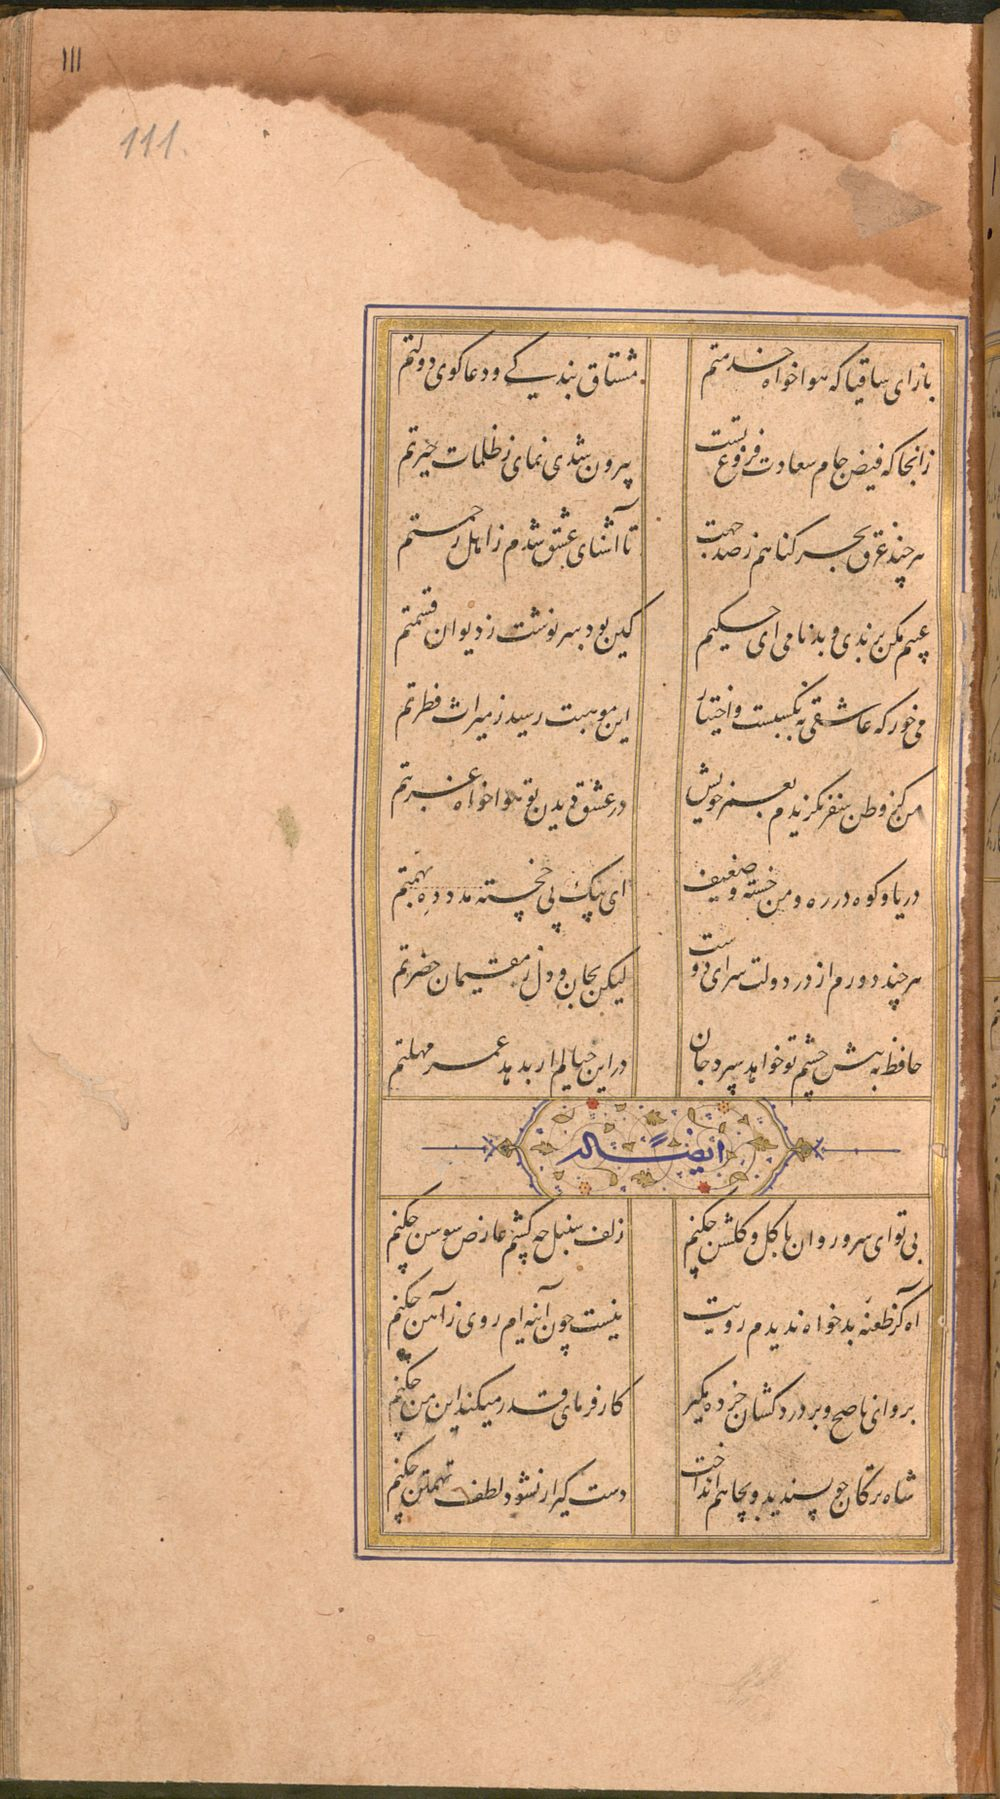 ١١١
111.
بازای ساقیا که هواخواه خدمتم مشتاق بندیکے و دعاکوی دولتم
زانجا که فیض جام سعادت فروغ تست بیرون شدی نمای ز ظلمات حیرتم
هرچند غرق بحر کناهم ز صد جهت تا آشنای عشق شدم ز اهل رحمتم
عیبم مکن برندی و بدنامی ای حکیم کین بود سرنوشت ز دیوان قسمتم
می خور که عاشقی نه بکسبست و اختیار این موهبت رسید ز میراث فطرتم
من کز وطن سفر نکزیدم بعمر خویش در عشق دیدن تو هواخواه غربتم
دریا و کوه در ره و من خسته و ضعیف ای پیک پی خجسته مدد ده بهمتم
هرچند دورم از در دولت سرای دوست لیکن بجان و دل ز مقیمان حضرتم
حافظ به پیش چشم تو خواهد سپرد جان در این خیالم ار بدهد عمر مهلتم
ایضاً له
بی تو ای سرو روان با کل و کلشن چکنم زلف سنبل چه کشم عارض سوسن چکنم
آه کز طعنه بدخواه ندیدم رویت نیست چون آینه ام روی ز آهن چکنم
برو ای ناصح و بر دردکشان خرده مکیر کارفرمای قدر میکند این من چکنم
شاه ترکان چو پسندید و بچاهم انداخت دست کیر ار نشود لطف تهمتن چکنم